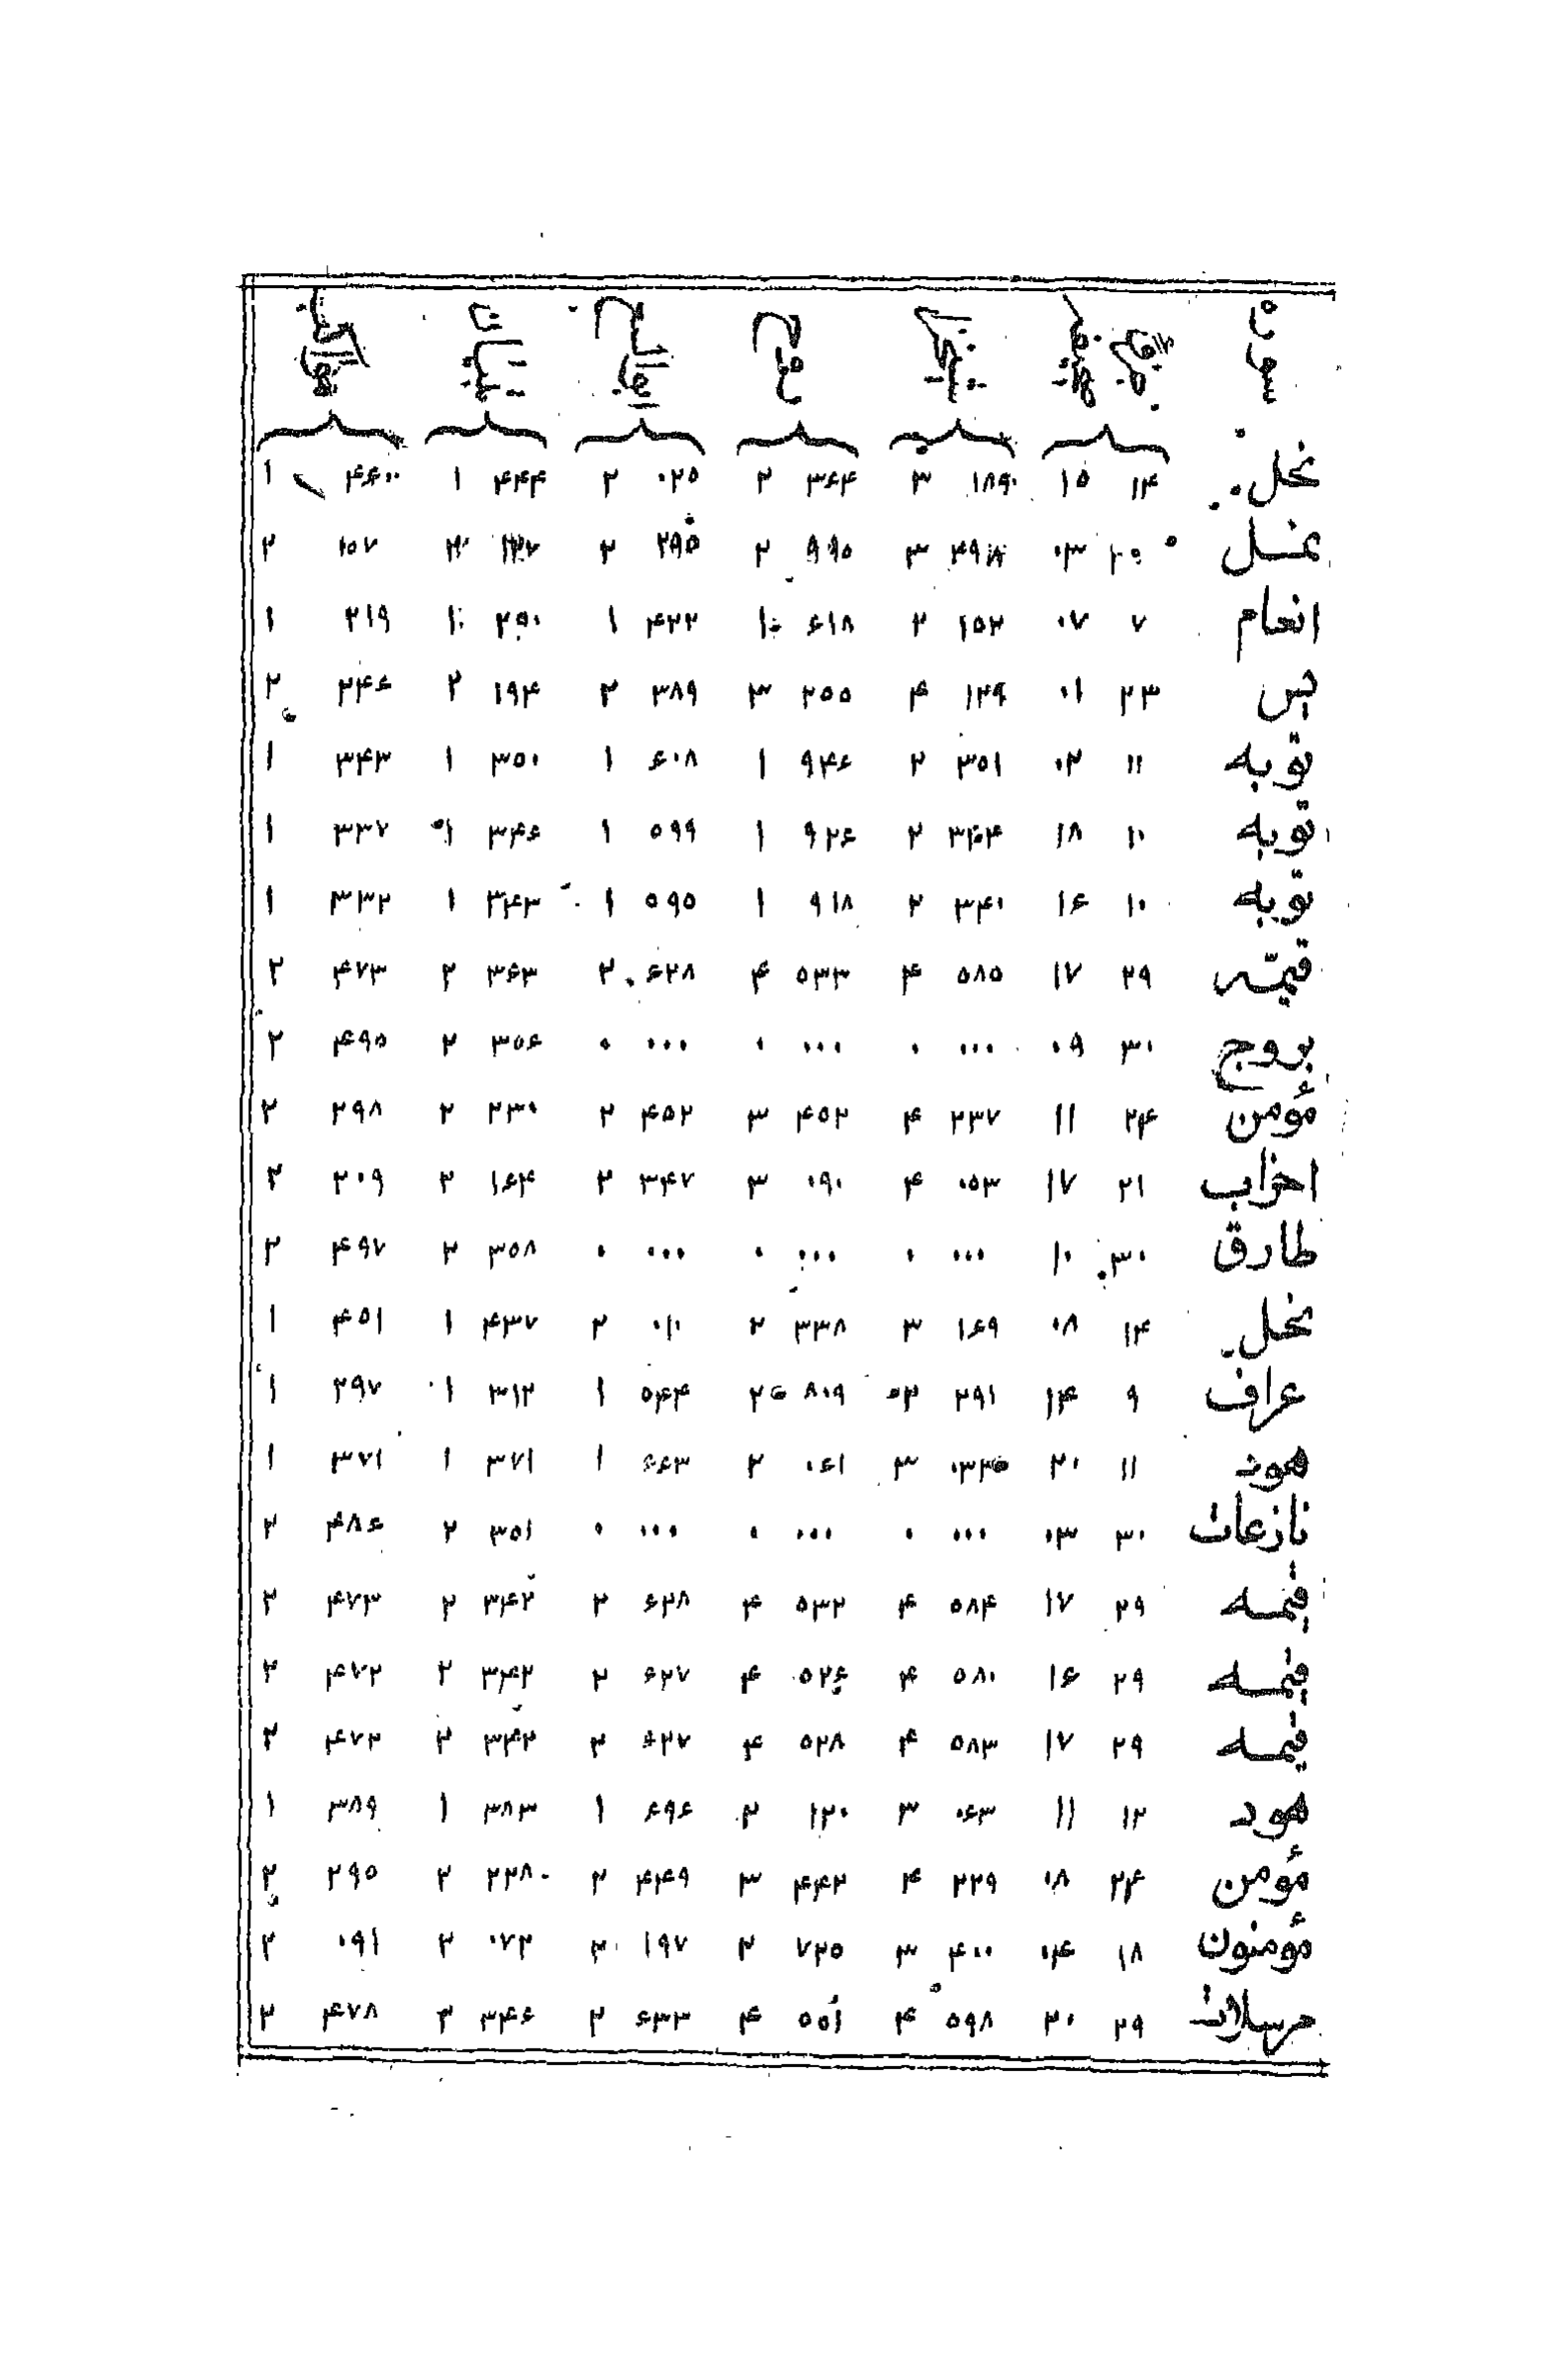 سوره
نحل ۱۴ ۱۵ ۱۸۹۰ ۳ ۳۶۴ ۲ ۰۲۵ ۲ ۴۴۴ ۱ ۴۶۰۰ ۱
نمل ۰۳ ۴۹۸ ۳ ۹۹۰ ۲ ۲۹۵ ۲ ۱۵۷ ۲
انعام ۷ ۰۷ ۱۵۲ ۲ ۶۱۸ ۱ ۴۲۲ ۱ ۲۹۰ ۱ ۲۱۹ ۱
یس ۲۳ ۰۱ ۱۲۹ ۴ ۲۵۵ ۳ ۳۸۹ ۲ ۱۹۴ ۲ ۲۴۶ ۲
توبه ۱۱ ۰۲ ۳۵۱ ۲ ۹۴۶ ۱ ۶۰۸ ۱ ۳۵۰ ۱ ۳۴۳ ۱
توبه ۱۰ ۱۸ ۲ ۹۲۶ ۱ ۵۹۹ ۱ ۳۴۶ ۱ ۳۳۷ ۱
توبه ۱۰ ۱۶ ۳۴۰ ۲ ۹۱۸ ۱ ۵۹۵ ۱ ۳۴۳ ۱ ۳۳۲ ۱
قیمّه ۲۹ ۱۷ ۵۸۵ ۴ ۵۳۳ ۴ ۶۲۸ ۲ ۳۶۳ ۲ ۴۷۳ ۲
بروج ۳۰ ۰۹ ۰۰۰ ۰ ۰۰۰ ۰ ۰۰۰ ۰ ۳۵۶ ۲ ۴۹۵ ۲
مؤمن ۲۴ ۱۱ ۲۳۷ ۴ ۴۵۲ ۳ ۴۵۲ ۲ ۲۳۰ ۲ ۲۹۸ ۲
احزاب ۲۱ ۱۷ ۰۵۳ ۴ ۰۹۰ ۳ ۳۴۷ ۲ ۱۶۴ ۲ ۲۰۹ ۲
طارق ۳۰ ۱۰ ۰۰۰ ۰ ۰۰۰ ۰ ۰۰۰ ۰ ۳۵۸ ۲ ۴۹۷ ۲
نحل ۱۴ ۰۸ ۱۶۹ ۳ ۳۳۸ ۲ ۰۱۰ ۲ ۴۳۷ ۱ ۴۵۱ ۱
عراف ۹ ۱۴ ۲۹۱ ۲ ۸۰۹ ۲ ۵۴۴ ۱ ۳۱۲ ۱ ۲۹۷ ۱
هود ۱۱ ۲۰ ۳ ۰۶۱ ۲ ۶۶۳ ۱ ۳۷۱ ۱ ۳۷۱ ۱
نازعات ۳۰ ۰۳ ۰۰۰ ۰ ۰۰۰ ۰ ۰۰۰ ۰ ۳۵۱ ۲ ۴۸۶ ۲
قیمه ۲۹ ۱۷ ۵۸۴ ۴ ۵۳۲ ۴ ۶۲۸ ۲ ۳۴۲ ۲ ۴۷۳ ۲
قیمه ۲۹ ۱۶ ۵۸۰ ۴ ۵۲۶ ۴ ۶۲۷ ۲ ۳۴۲ ۲ ۴۷۲ ۲
قیمه ۲۹ ۱۷ ۵۸۳ ۴ ۵۲۸ ۴ ۶۲۷ ۲ ۳۴۲ ۲ ۴۷۲ ۲
هود ۱۲ ۱۱ ۰۶۳ ۳ ۱۲۰ ۲ ۶۹۶ ۱ ۳۸۳ ۱ ۳۸۹ ۱
مؤمن ۲۴ ۰۸ ۲۲۹ ۴ ۴۴۲ ۳ ۴۴۹ ۲ ۲۲۸ ۲ ۲۹۵ ۲
مؤمنون ۱۸ ۰۴ ۴۰۰ ۳ ۷۲۵ ۲ ۱۹۷ ۲ ۰۷۲ ۲ ۰۹۱ ۲
مرسلات ۲۹ ۲۰ ۵۹۸ ۴ ۵۵۱ ۴ ۶۳۳ ۲ ۳۴۶ ۲ ۴۷۸ ۲